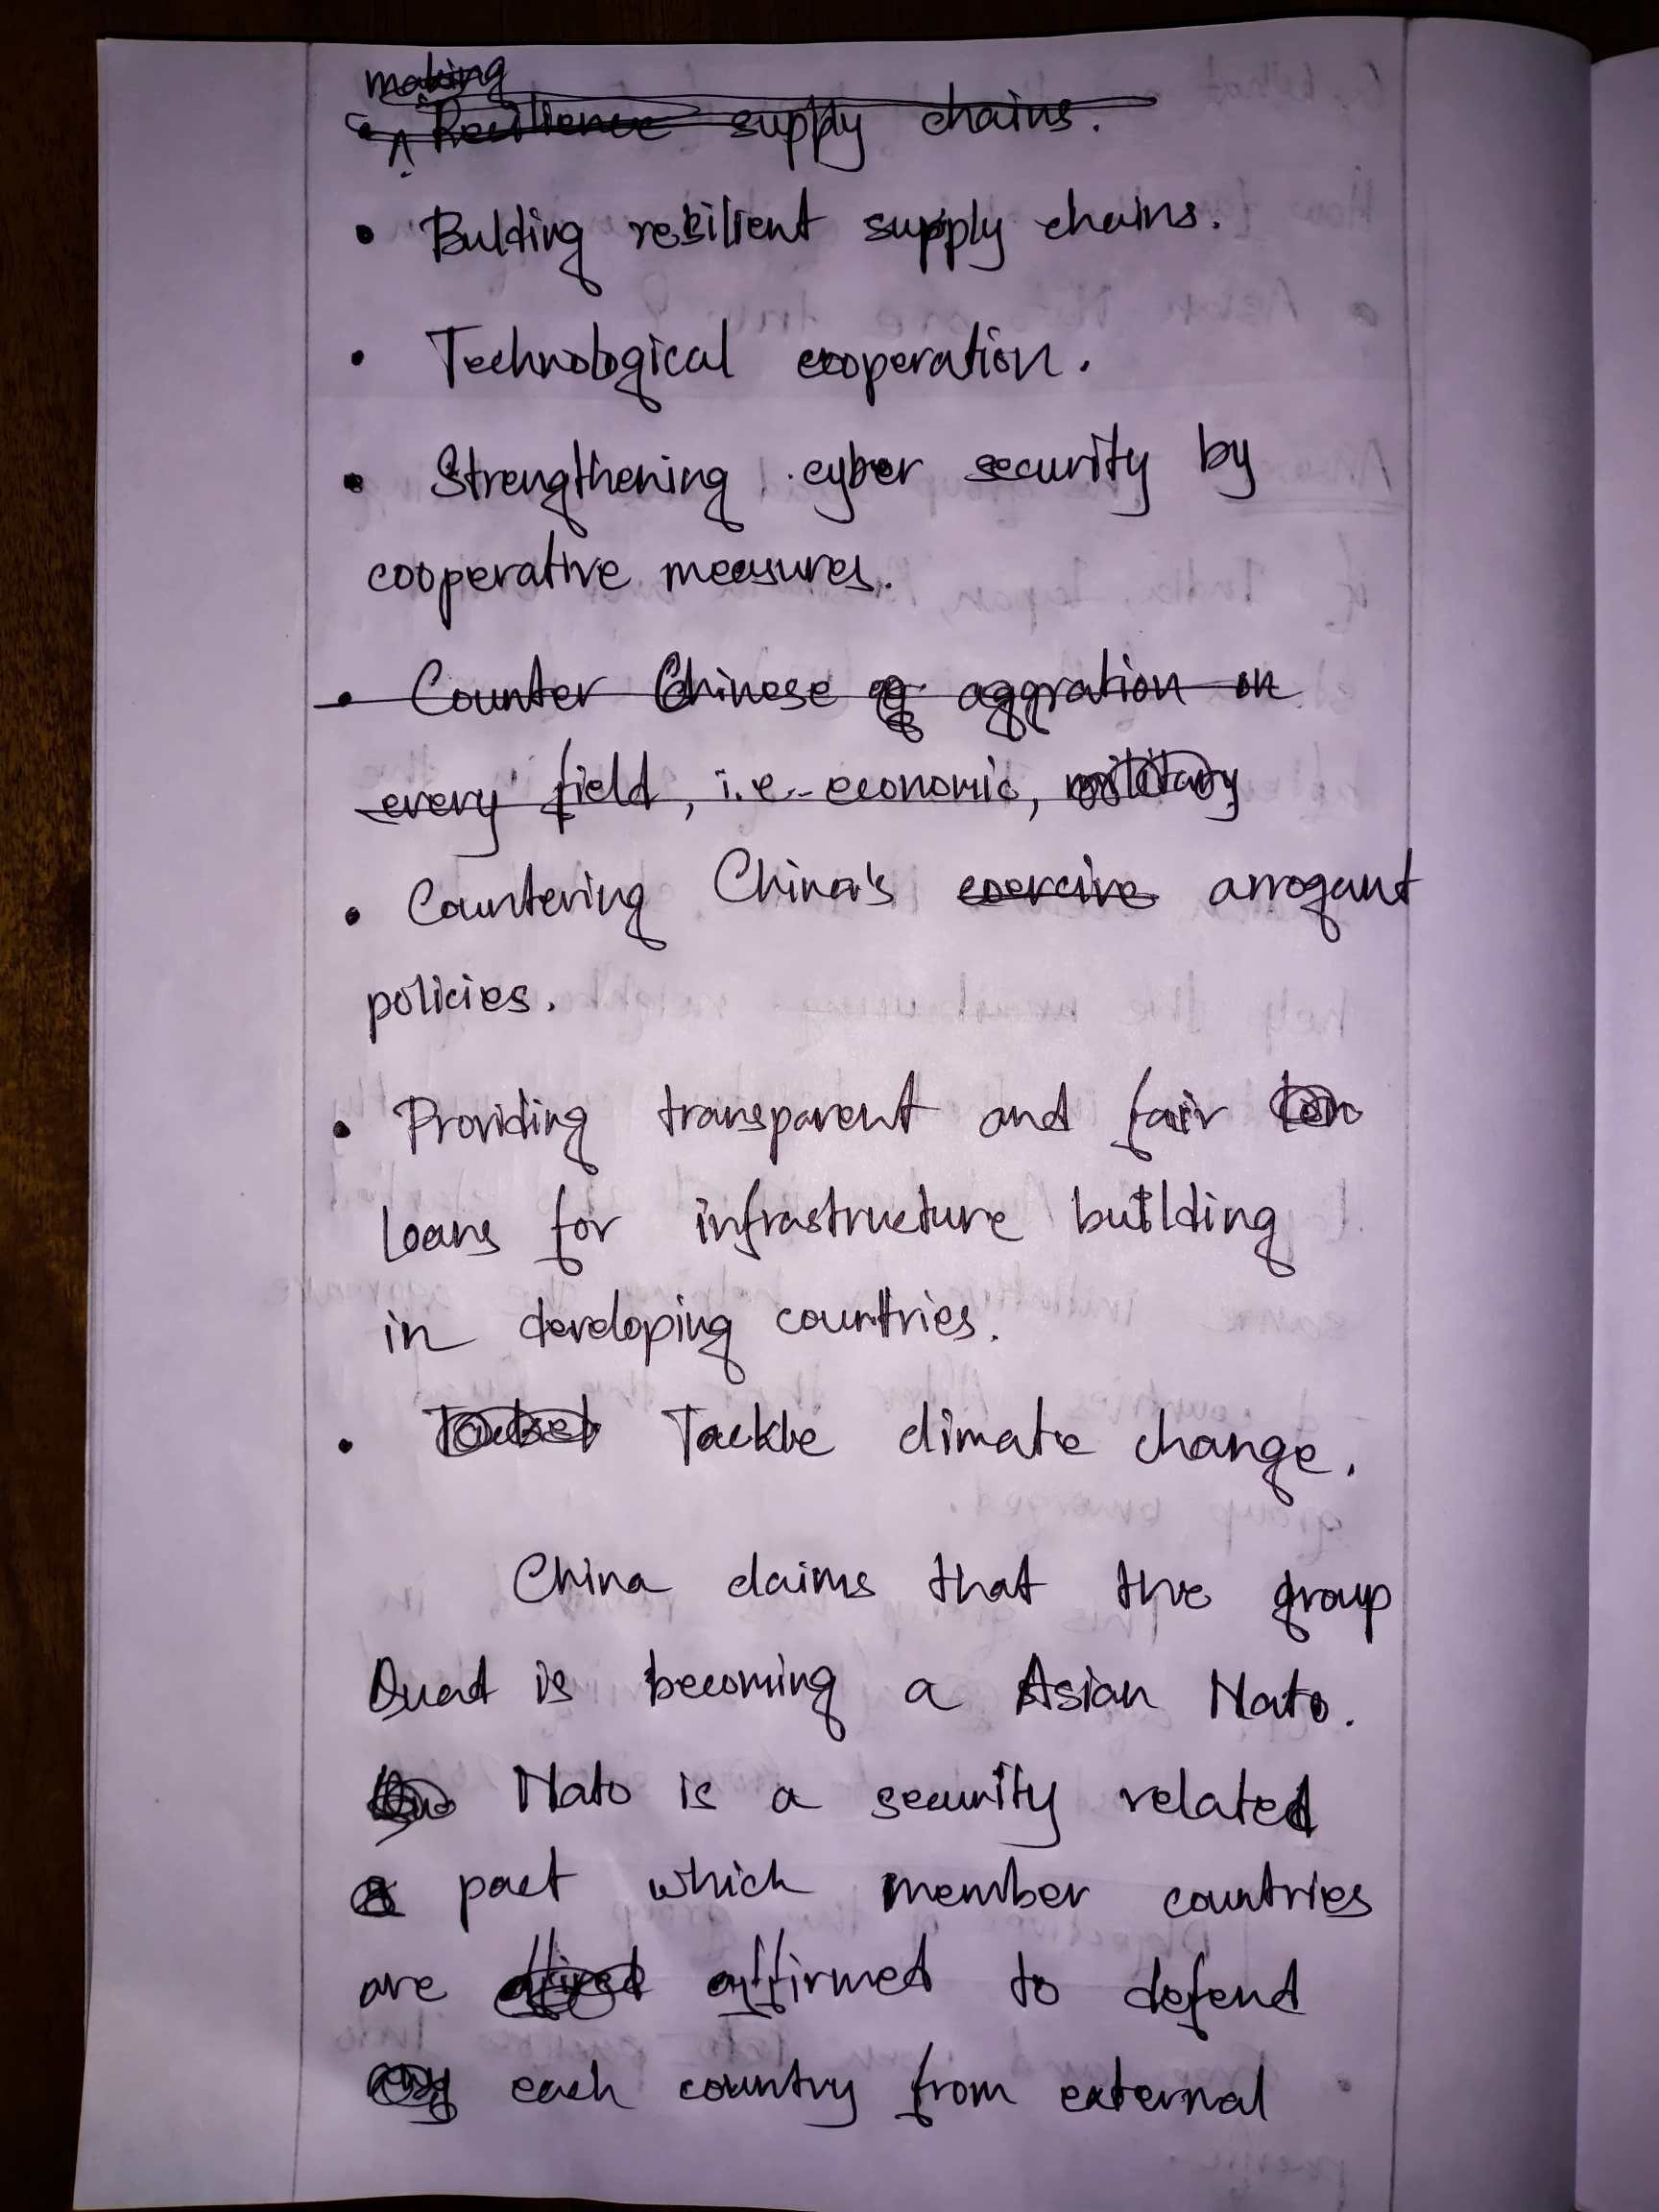 making
• Resilience supply chains.
• Bulding resilient supply chains.
• Technological cooperation.
• Strengthening cyber security by
cooperative measures.
• Counter Chinese aggration on
every field, i.e. economic, military
• Countering China's coercive arrogant
policies.
• Providing transparent and fair
loans for infrastructure building
in developing countries.
• Tackle climate change.
China claims that the group
Quad is becoming a Asian Nato.
Nato is a security related
pact which member countries
are affirmed to defend
each country from external